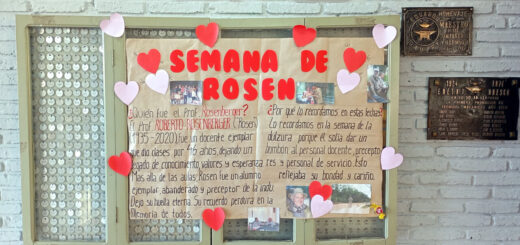 SEMANA DE
ROSEN
¿Quién fue el Prof. Rosenberger?
El Prof. ROBERTO ROSENBERGER (Rosen)
1935-2020) fue un docente ejemplar
que dio clases por 46 años, dejando un
legado de conocimiento, valores y esperanza
Más allá de las aulas Rosen fue un alumno
ejemplar, abanderado y preceptor de la
Dejó su huella eterna. Su recuerdo perdura en la
Memoria de todos.
¿Por qué lo recordamos en estas fechas?
Lo recordamos en la semana de la
dulzura porque él solía dar un
bombón al personal docente, preceptores
y personal de servicio. Esto
reflejaba su bondad y cariño.
HOMENAJE
MAESTRO
1924 1974